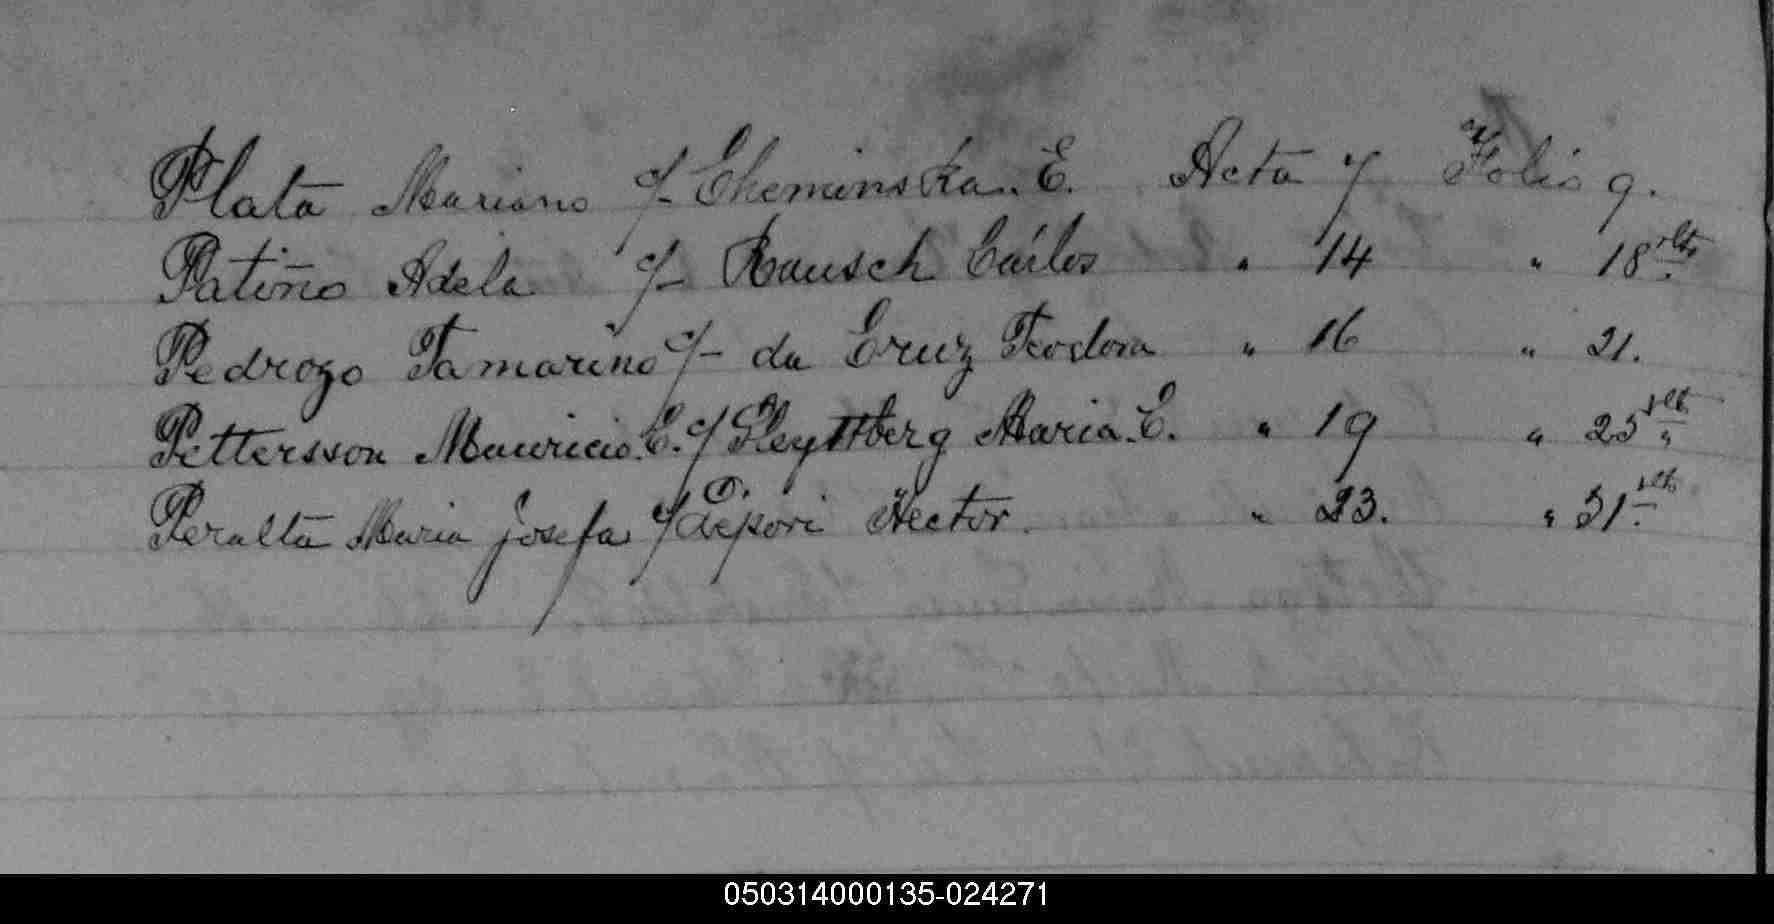 Plata Mariano c/ Cheminska. E. Acta 7 Folio 9.
Patiño Adela c/ Rausch Cárlos " 14 " 18 vlto
Pedrozo Tamarino c/ da Cruz Teodora " 16 " 21.
Pettersson Mauricio. E. c/ Maria. C. " 19 " 25 vlto
Peralta Maria Josefa c/ D. Lepori Hector. " 23. " 31 vlto
050314000135-024271